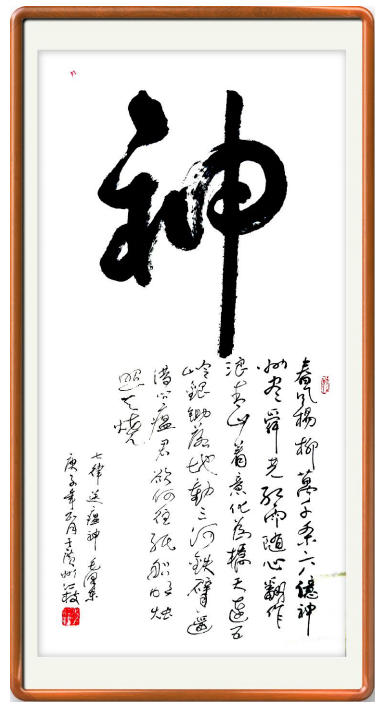 神
春风楊柳萬千条六億神
州尽舜尧红雨随心翻作
浪青山着意化為橋天连五
岭銀鋤落地動三河鉄臂遥
借问瘟君欲何往纸船明烛
照天烧
七律送瘟神 毛泽东
庚子年 月于广州